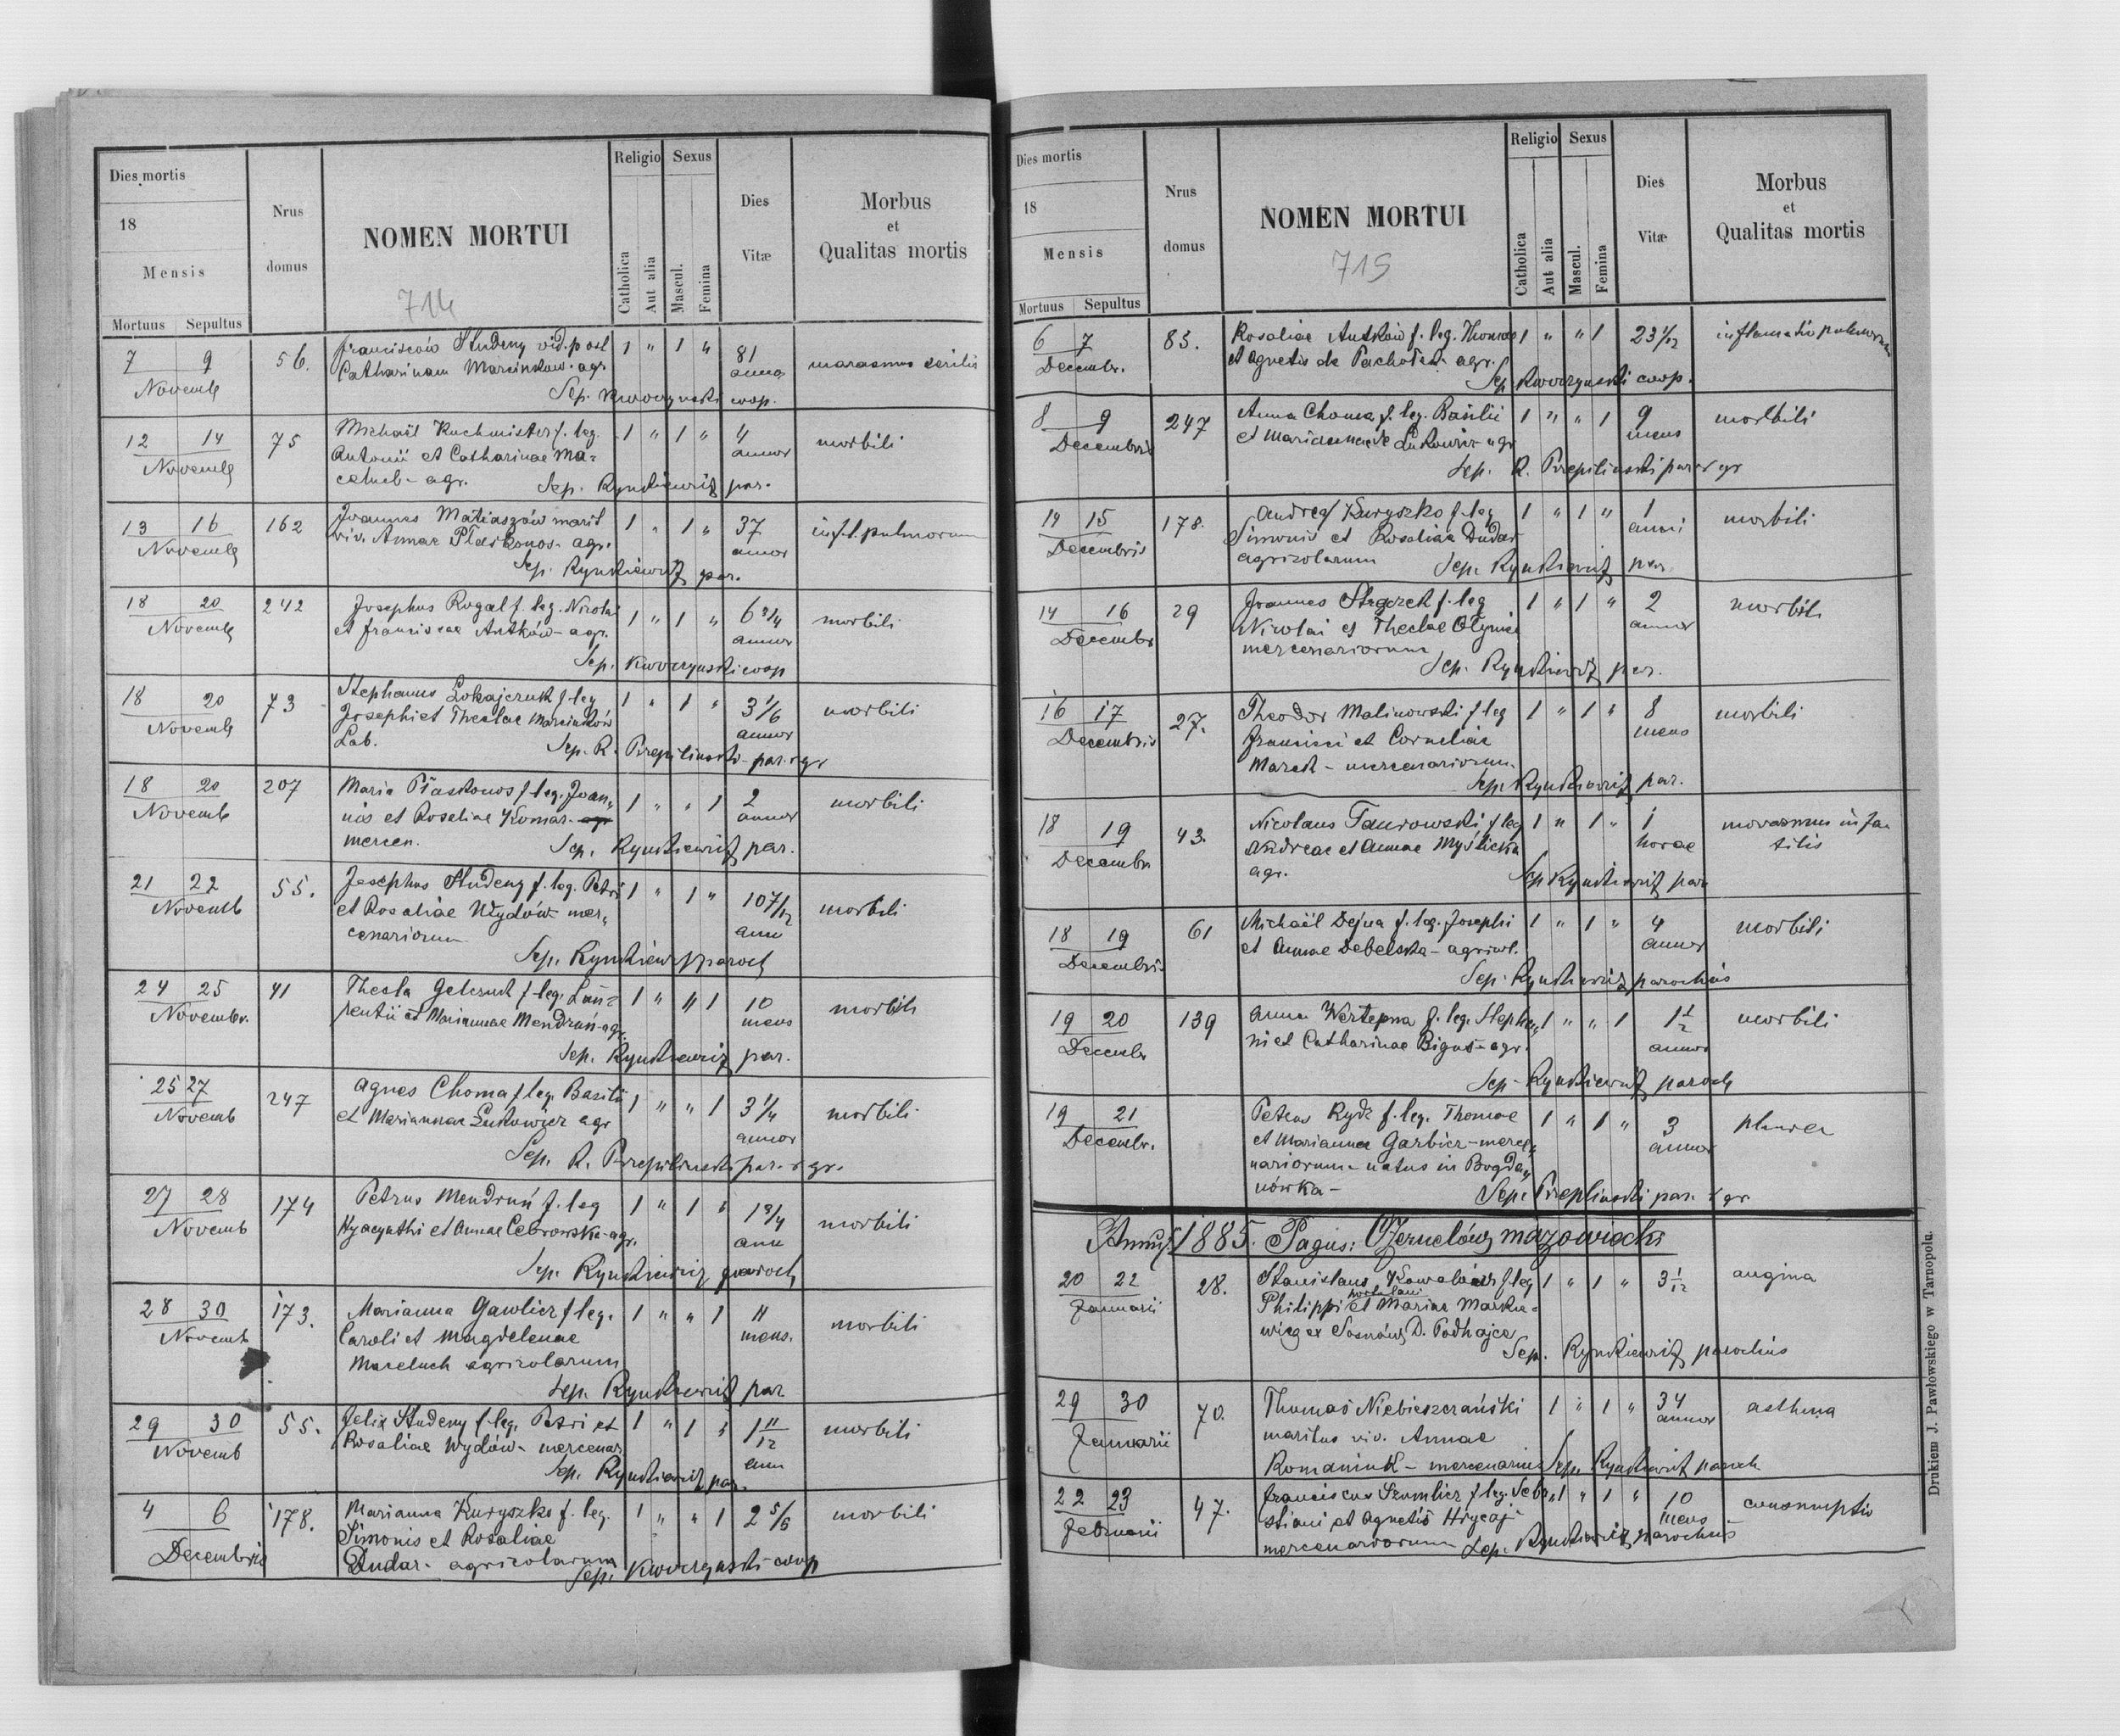 Dies mortis
18
Mensis
Mortuus Sepultus
Nrus
domus
NOMEN MORTUI
714
Religio
Catholica
Aut alia
Sexus
Mascul.
Femina
Dies
Vitæ
Morbus
et
Qualitas mortis
7 9 56. Studeny vid. post 1 " 1 " 81
Novemb Catharinam Marcinków- agr. marasmus senilis
Sep. Kworzynski coop.
12 14 75 Michaël Kuchmister f. leg. 1 " 1 " 4 morbili
Novemb Antonii et Catharinae Ma= annor
celuch- agr. Sep. Rynkiewicz par.
13 16 162 Joannes Matiaszów marit 1 " 1 " 37 infl. pulmorum
Novemb viv. Annae Płaskonos- agr. annor
Sep. Rynkiewicz par.
18 20 242 Josephus Rogal f. leg. Nicolai 1 " 1 " 6 3/4 morbili
Novemb et Franciscae Antków- agr. annor
Sep. Kworzynski coop
18 20 73 Stephanus Lokajczuk f leg 1 " 1 " 3 1/6 morbili
Novemb Josephi et Theclae Marcinków annor
Lab. Sep. R. Przepilinski- par. r gr
18 20 207 Maria Płaskonos f leg. Joan„ 1 " " 1 2 morbili
Novemb nis et Rosaliae Komar- agr annor
mercen. Sep. Rynkiewicz par.
21 22 55. Josephus Studeny f. leg. Petri 1 " 1 " 10 7/12 morbili
Novemb et Rosaliae Wydów- mer„ ann
cenariorum
Sep. Rynkiewicz paroch
24 25 41 Thecla f leg. 1 " " 1 10 morbili
Novembr. et Mariannae Mendruń- agr. mens
Sep. Rynkiewicz par.
25 27 247 Agnes Choma f leg. Basilii 1 " " 1 3 1/4 morbili
Novemb et Mariannae Lukowicz agr annor
Sep. R. Przepilinski par. r gr.
27 28 174 Petrus Mendruń f. leg 1 " 1 " 1 3/4 morbili
Novemb Hyacynthi et Annae Cebrowska- agr. ann
Sep. Rynkiewicz paroch
28 30 173. Marianna Gawlicz f leg. 1 " " 1 11 morbili
Novemb Caroli et Magdalenae mens.
Maceluch agricolarum
Sep. Rynkiewicz par
29 30 55. Felix Studeny f. leg. Petri et 1 " 1 " 1 11/12 morbili
Novemb Rosaliae Wydów- mercenar ann
Sep. Rynkiewicz par.
4 6 178. Marianna Kuryszko f. leg. 1 " " 1 2 5/6 morbili
Decembris Simonis et Rosaliae
Dudar- agricolarum
Sep. Kworzynski coop
Dies mortis
18
Mensis
Mortuus Sepultus
Nrus
domus
NOMEN MORTUI
715
Religio
Catholica
Aut alia
Sexus
Mascul.
Femina
Dies
Vitæ
Morbus
et
Qualitas mortis
6 7 83. Rosaliae Antków f. leg. Thomae 1 " " 1 2 3 1/12 inflamatio pulmorum
Decembr. et Agnetis de Pachołek- agr.
Sep. Kworzynski coop.
8 9 247 Anna Choma f. leg. Basilii 1 " " 1 9 morbili
Decembris et Mariannae de Lukowicz- agr mens
Sep. R. Przepilinski par. r gr
14 15 178. Andreas Kuryszko f. leg 1 " 1 " 1 morbili
Decembris Simonis et Rosaliae Dudar anni
agricolarum Sep. Rynkiewicz par.
14 16 29 Joannes f. leg 1 " 1 " 2 morbili
Decembr Nicolai et Theclae annor
mercenariorum
Sep. Rynkiewicz par.
16 17 27. Theodor Malinowski f leg 1 " 1 " 8 morbili
Decembris Francisci et Corneliae mens
Marek- mercenariorum
Sep. Rynkiewicz par.
18 19 43. Nicolaus Taurowski f leg 1 " 1 " 1 marasmus infan
Decembr. Andreae et Annae Myślicka horae tilis
agr. Sep Rynkiewicz par
18 19 61 Michaël Dejna f. leg. Josephi 1 " 1 " 4 morbili
Decembris et Annae Debelska- agricol. annor
Sep. Rynkiewicz parochus
19 20 139 Anna Wertepna f. leg. Stepha„ 1 " " 1 1 1/2 morbili
Decembr ni et Catharinae Bigus- agr. annor
Sep- Rynkiewicz paroch
19 21 Petrus Rydz f. leg. Thomae 1 " 1 " 3
Decembr. et Marianna Garbicz- merce„ annor
nariorum- natus in Bogda„
nówka- Sep. Przepilinski par. r gr
Annus 1885. Pagus: Czernelów mazowiecki
20 22 28. Stanislaus Kowalów f leg 1 " 1 " 3 1/12 angina
Januarii Philippi hortulani et Mariae Marku=
wicz ex Sosnów, D. Podhajce
Sep. Rynkiewicz parochus
29 30 70. Thomas Niebieszczański 1 " 1 " 34 asthma
Januarii maritus viv. Annae annor
Romaniuk- mercenarius Sep. Rynkiewicz paroch
22 23 47. Franciscus Szumlicz f leg. Seba„ 1 " 1 " 10 consumptio
Februarii stiani et Agnetis Hrycaj- mens
mercenariorum Sep. Rynkiewicz parochus
Drukiem J. Pawłowskiego w Tarnopolu.